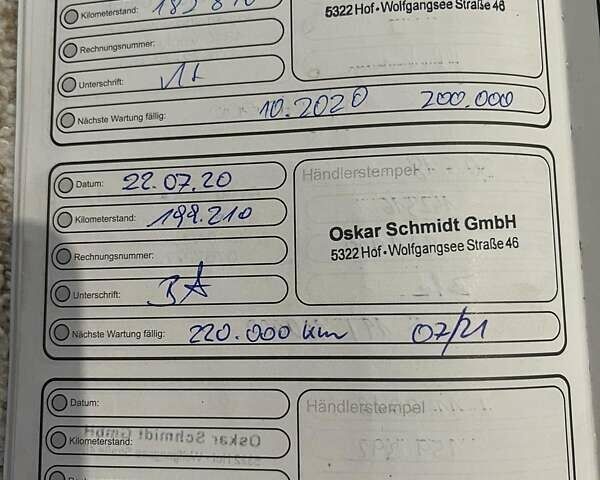 Kilometerstand:
5322 Hof • Wolfgangsee Straße 46
Rechnungsnummer:
Unterschrift:
Nächste Wartung fällig: 10.2020 200.000
Händlerstempel
Datum: 22.07.20
Oskar Schmidt GmbH
Kilometerstand: 199.210
5322 Hof • Wolfgangsee Straße 46
Rechnungsnummer:
Unterschrift:
Nächste Wartung fällig: 220.000 km 07/21
Datum:
Händlerstempel
Kilometerstand: